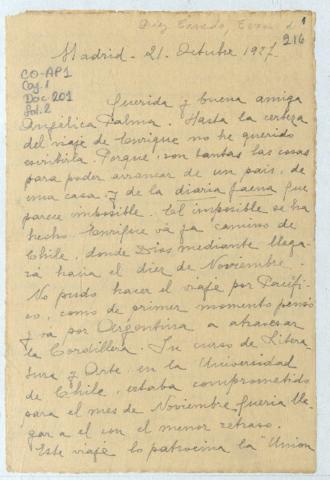 Diez Canedo,
1
216
Madrid - 21. Octubre 1927
CO-AP1
Caj. 1
Doc 201
fol. 2
Querida y buena amiga
Angélica Palma. Hasta la certeza
del viaje de Enrique no he querido
escribirla. Porque, son tantas las cosas
para poder arrancar de un pais, de
una casa y de la diaria faena que
parece imposible. El imposible se ha
hecho. Enrique vá ya camino de
Chile, donde Dios mediante llega-
rá hacia el diez de Noviembre.
No pudo hacer el viaje por Pacifi-
co, como de primer momento pensó
y va por Argentina a atravesar
la Cordillera. Su curso de Litera
tura y Arte, en la Universidad
de Chile, estaba comprometido
para el mes de Noviembre, queria lle-
gar a el con el menor retraso.
Este viaje lo patrocina la "Union